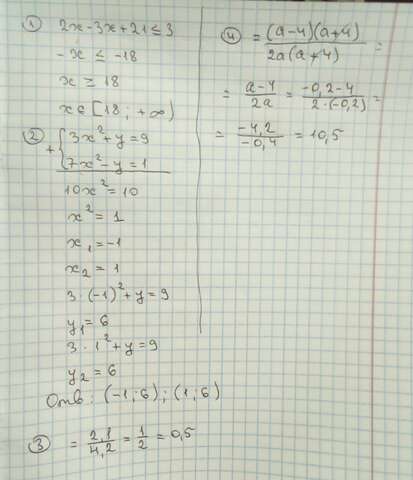 ① 2x-3x+21≤3
-x ≤ -18
x ≥ 18
x∈[18; +∞)
② + { 3x²+y=9
7x²-y=1
10x²=10
x²=1
x₁=-1
x₂=1
3·(-1)²+y=9
y₁=6
3·1²+y=9
y₂=6
Отв: (-1;6); (1;6)
③ = 2,1/4,2 = 1/2 = 0,5
④ = (a-4)(a+4)/2a(a+4) =
= a-4/2a = -0,2-4/2·(-0,2) =
= -4,2/-0,4 = 10,5